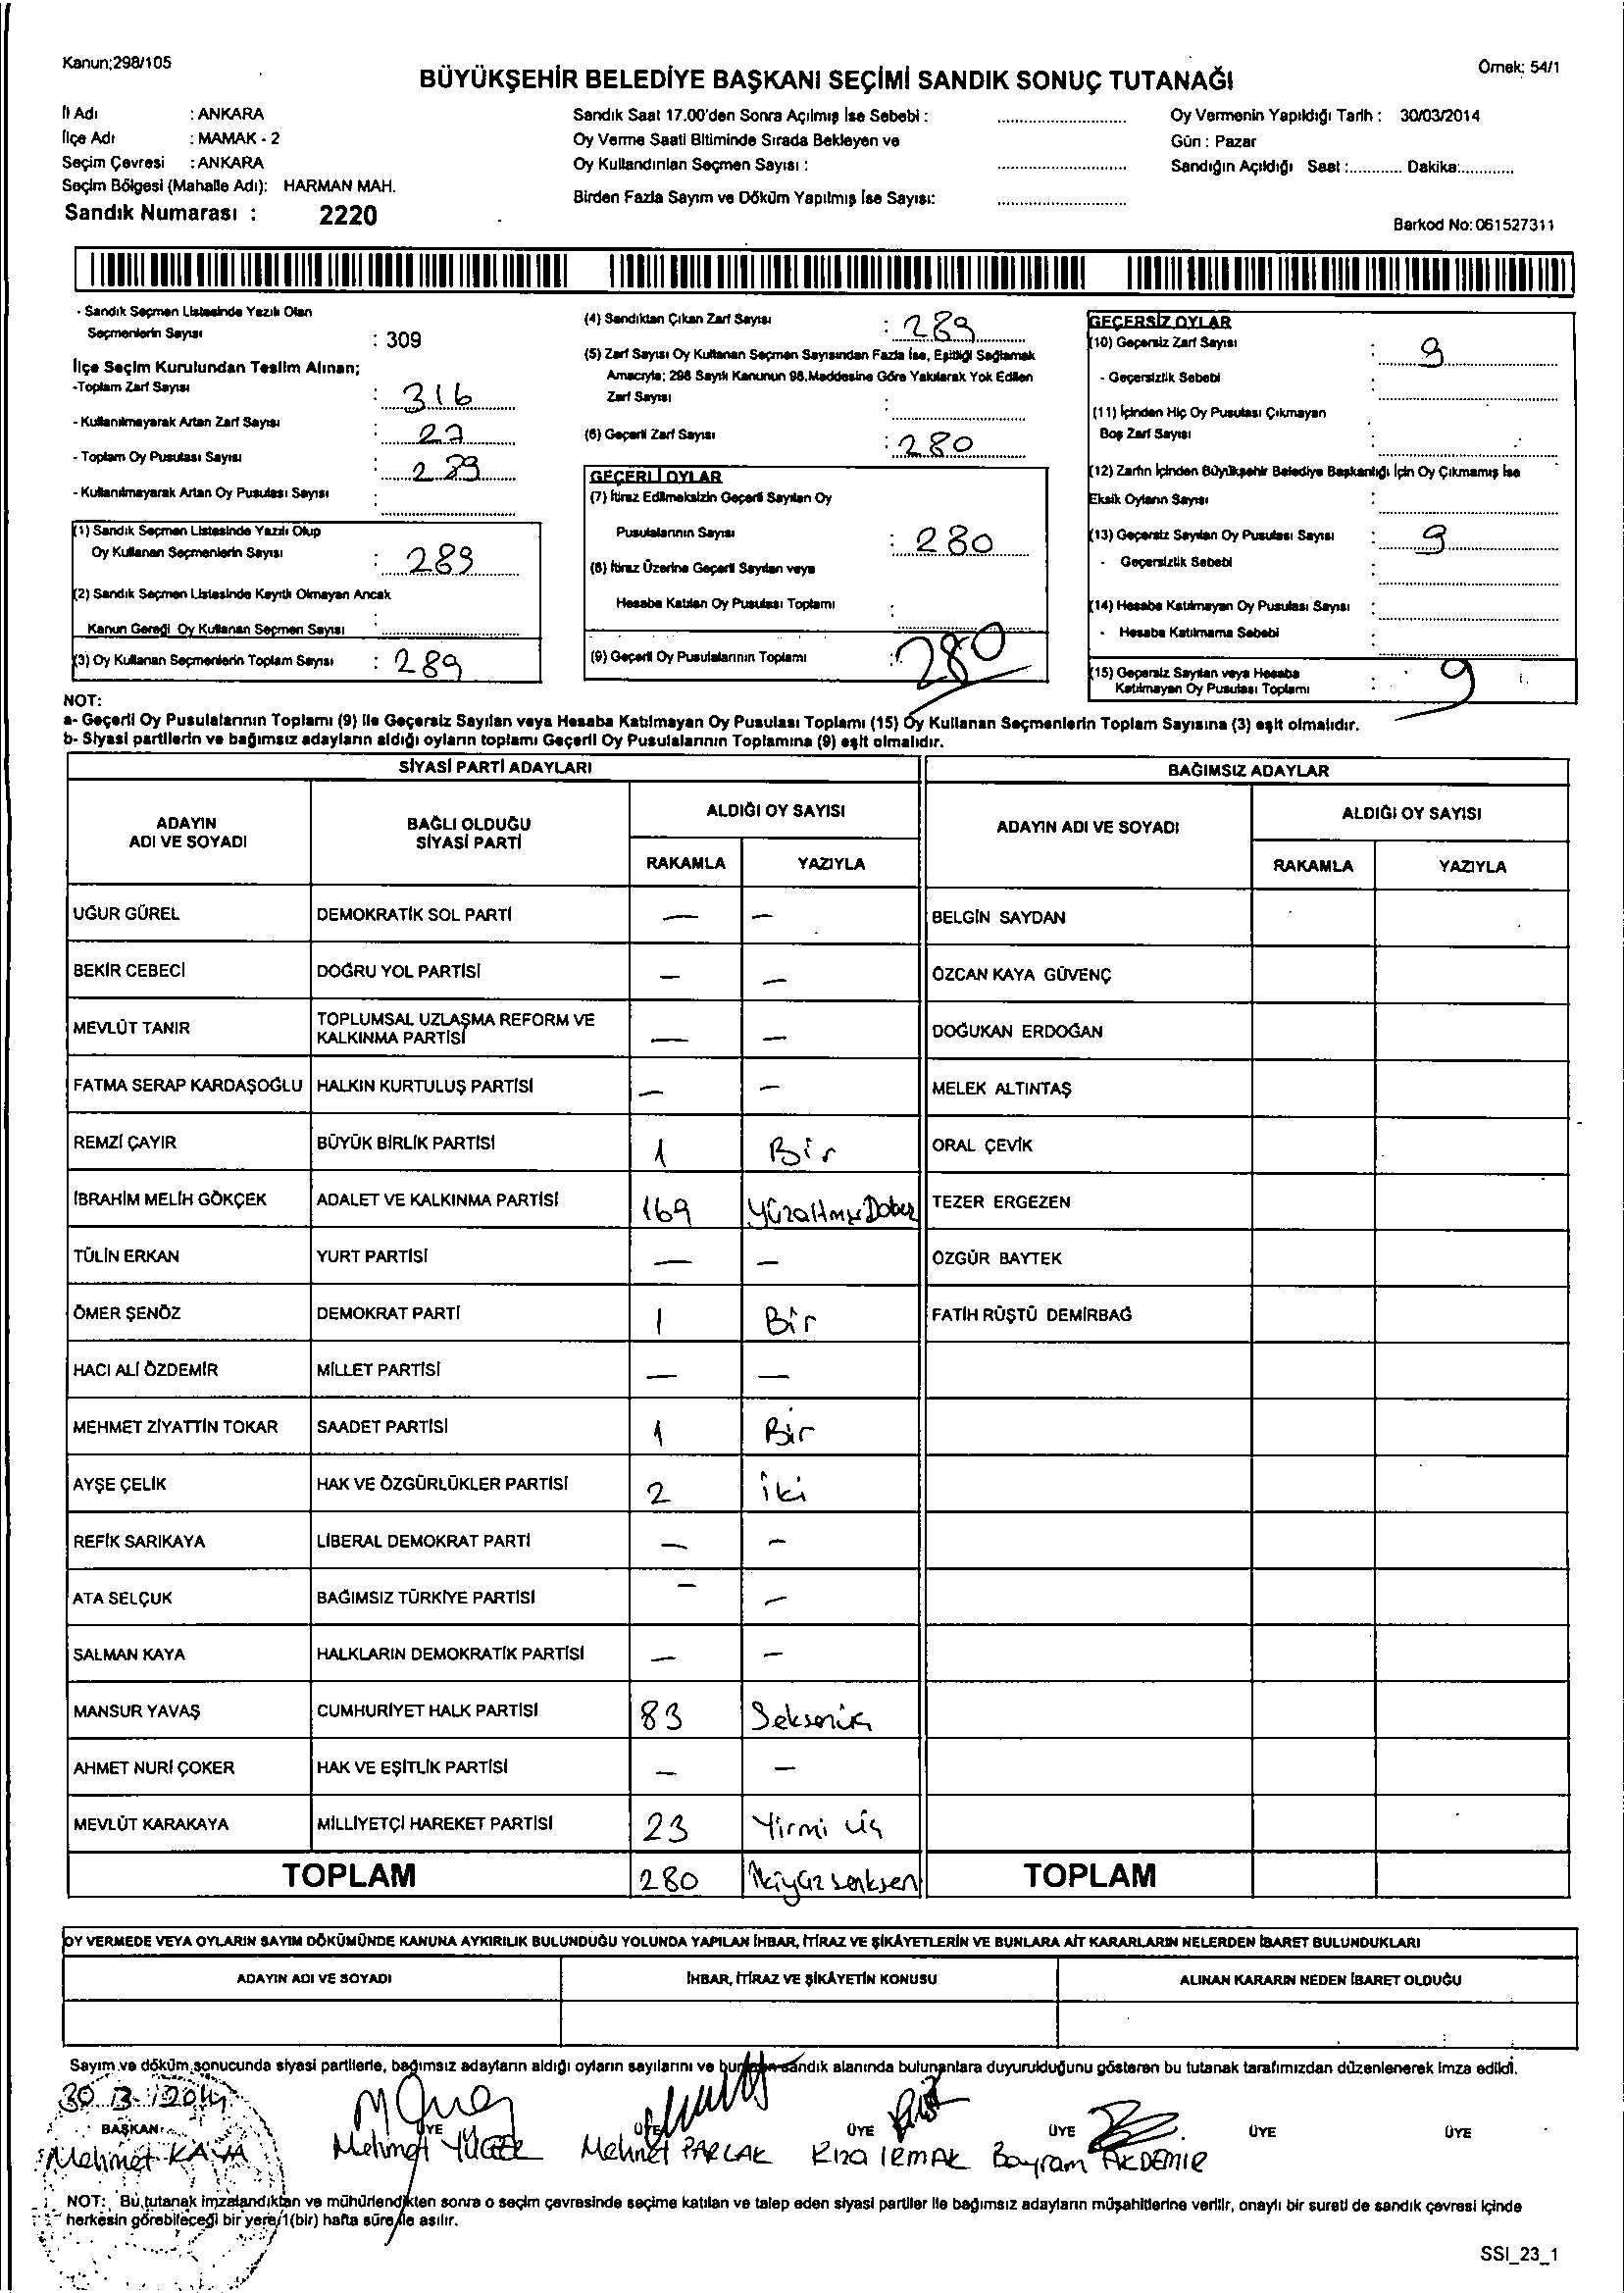 Kanun;298/105
Örnek: 54/1
BÜYÜKŞEHİR BELEDİYE BAŞKANI SEÇİMİ SANDIK SONUÇ TUTANAĞI
İl Adı : ANKARA
İlçe Adı : MAMAK - 2
Seçim Çevresi : ANKARA
Seçim Bölgesi (Mahalle Adı): HARMAN MAH.
Sandık Numarası : 2220
Sandık Saat 17.00'den Sonra Açılmış İse Sebebi :
Oy Verme Saati Bitiminde Sırada Bekleyen ve
Oy Kullandırılan Seçmen Sayısı :
Birden Fazla Sayım ve Döküm Yapılmış İse Sayısı:
Oy Vermenin Yapıldığı Tarih : 30/03/2014
Gün : Pazar
Sandığın Açıldığı Saat :............ Dakika:............
Barkod No: 061527311
- Sandık Seçmen Listesinde Yazılı Olan
Seçmenlerin Sayısı : 309
İlçe Seçim Kurulundan Teslim Alınan;
-Toplam Zarf Sayısı : 316
- Kullanılmayarak Artan Zarf Sayısı : 27
- Toplam Oy Pusulası Sayısı : 289
- Kullanılmayarak Artan Oy Pusulası Sayısı :
(1) Sandık Seçmen Listesinde Yazılı Olup
Oy Kullanan Seçmenlerin Sayısı : 289
(2) Sandık Seçmen Listesinde Kayıtlı Olmayan Ancak
Kanun Gereği Oy Kullanan Seçmen Sayısı :
(3) Oy Kullanan Seçmenlerin Toplam Sayısı : 289
(4) Sandıktan Çıkan Zarf Sayısı : 289
(5) Zarf Sayısı Oy Kullanan Seçmen Sayısından Fazla İse, Eşitliği Sağlamak
Amacıyla; 298 Sayılı Kanunun 98.Maddesine Göre Yakılarak Yok Edilen
Zarf Sayısı :
(6) Geçerli Zarf Sayısı : 280
GEÇERLİ OYLAR
(7) İtiraz Edilmeksizin Geçerli Sayılan Oy
Pusulalarının Sayısı : 280
(8) İtiraz Üzerine Geçerli Sayılan veya
Hesaba Katılan Oy Pusulası Toplamı :
(9) Geçerli Oy Pusulalarının Toplamı : 280
GEÇERSİZ OYLAR
(10) Geçersiz Zarf Sayısı : 9
- Geçersizlik Sebebi :
(11) İçinden Hiç Oy Pusulası Çıkmayan
Boş Zarf Sayısı :
(12) Zarfın İçinden Büyükşehir Belediye Başkanlığı İçin Oy Çıkmamış İse
Eksik Oyların Sayısı :
(13) Geçersiz Sayılan Oy Pusulası Sayısı : 9
- Geçersizlik Sebebi :
(14) Hesaba Katılmayan Oy Pusulası Sayısı :
- Hesaba Katılmama Sebebi :
(15) Geçersiz Sayılan veya Hesaba
Katılmayan Oy Pusulası Toplamı : 9
NOT:
a- Geçerli Oy Pusulalarının Toplamı (9) ile Geçersiz Sayılan veya Hesaba Katılmayan Oy Pusulası Toplamı (15) Oy Kullanan Seçmenlerin Toplam Sayısına (3) eşit olmalıdır.
b- Siyasi partilerin ve bağımsız adayların aldığı oyların toplamı Geçerli Oy Pusulalarının Toplamına (9) eşit olmalıdır.
SİYASİ PARTİ ADAYLARI BAĞIMSIZ ADAYLAR
ADAYIN ADI VE SOYADI BAĞLI OLDUĞU SİYASİ PARTİ ALDIĞI OY SAYISI ADAYIN ADI VE SOYADI ALDIĞI OY SAYISI
RAKAMLA YAZIYLA RAKAMLA YAZIYLA
UĞUR GÜREL DEMOKRATİK SOL PARTİ — — BELGİN SAYDAN
BEKİR CEBECİ DOĞRU YOL PARTİSİ — — ÖZCAN KAYA GÜVENÇ
MEVLÜT TANIR TOPLUMSAL UZLAŞMA REFORM VE KALKINMA PARTİSİ — — DOĞUKAN ERDOĞAN
FATMA SERAP KARDAŞOĞLU HALKIN KURTULUŞ PARTİSİ — — MELEK ALTINTAŞ
REMZİ ÇAYIR BÜYÜK BİRLİK PARTİSİ 1 Bir ORAL ÇEVİK
İBRAHİM MELİH GÖKÇEK ADALET VE KALKINMA PARTİSİ 169 TEZER ERGEZEN
TÜLİN ERKAN YURT PARTİSİ — — ÖZGÜR BAYTEK
ÖMER ŞENÖZ DEMOKRAT PARTİ 1 Bir FATİH RÜŞTÜ DEMİRBAĞ
HACI ALİ ÖZDEMİR MİLLET PARTİSİ — —
MEHMET ZİYATTİN TOKAR SAADET PARTİSİ 1 Bir
AYŞE ÇELİK HAK VE ÖZGÜRLÜKLER PARTİSİ 2 iki
REFİK SARIKAYA LİBERAL DEMOKRAT PARTİ — —
ATA SELÇUK BAĞIMSIZ TÜRKİYE PARTİSİ — —
SALMAN KAYA HALKLARIN DEMOKRATİK PARTİSİ — —
MANSUR YAVAŞ CUMHURİYET HALK PARTİSİ 83 Seksenüç
AHMET NURİ ÇOKER HAK VE EŞİTLİK PARTİSİ — —
MEVLÜT KARAKAYA MİLLİYETÇİ HAREKET PARTİSİ 23 Yirmi üç
TOPLAM 280 TOPLAM
OY VERMEDE VEYA OYLARIN SAYIM DÖKÜMÜNDE KANUNA AYKIRILIK BULUNDUĞU YOLUNDA YAPILAN İHBAR, İTİRAZ VE ŞİKÂYETLERİN VE BUNLARA AİT KARARLARIN NELERDEN İBARET BULUNDUKLARI
ADAYIN ADI VE SOYADI İHBAR, İTİRAZ VE ŞİKÂYETİN KONUSU ALINAN KARARIN NEDEN İBARET OLDUĞU
Sayım ve döküm sonucunda siyasi partilerle, bağımsız adayların aldığı oyların sayılarını ve bunların sandık alanında bulunanlara duyurulduğunu gösteren bu tutanak tarafımızdan düzenlenerek imza edildi.
30.3.2014
BAŞKAN ÜYE ÜYE ÜYE ÜYE ÜYE ÜYE
Mehmet KAYA Mehmet YÜCEL Mehmet PARLAK Rıza IRMAK Bayram AKDEMİR
NOT: Bu tutanak imzalandıktan ve mühürlendikten sonra o seçim çevresinde seçime katılan ve talep eden siyasi partiler ile bağımsız adayların müşahitlerine verilir, onaylı bir sureti de sandık çevresi içinde
herkesin görebileceği bir yere 1(bir) hafta süre ile asılır.
SSI_23_1